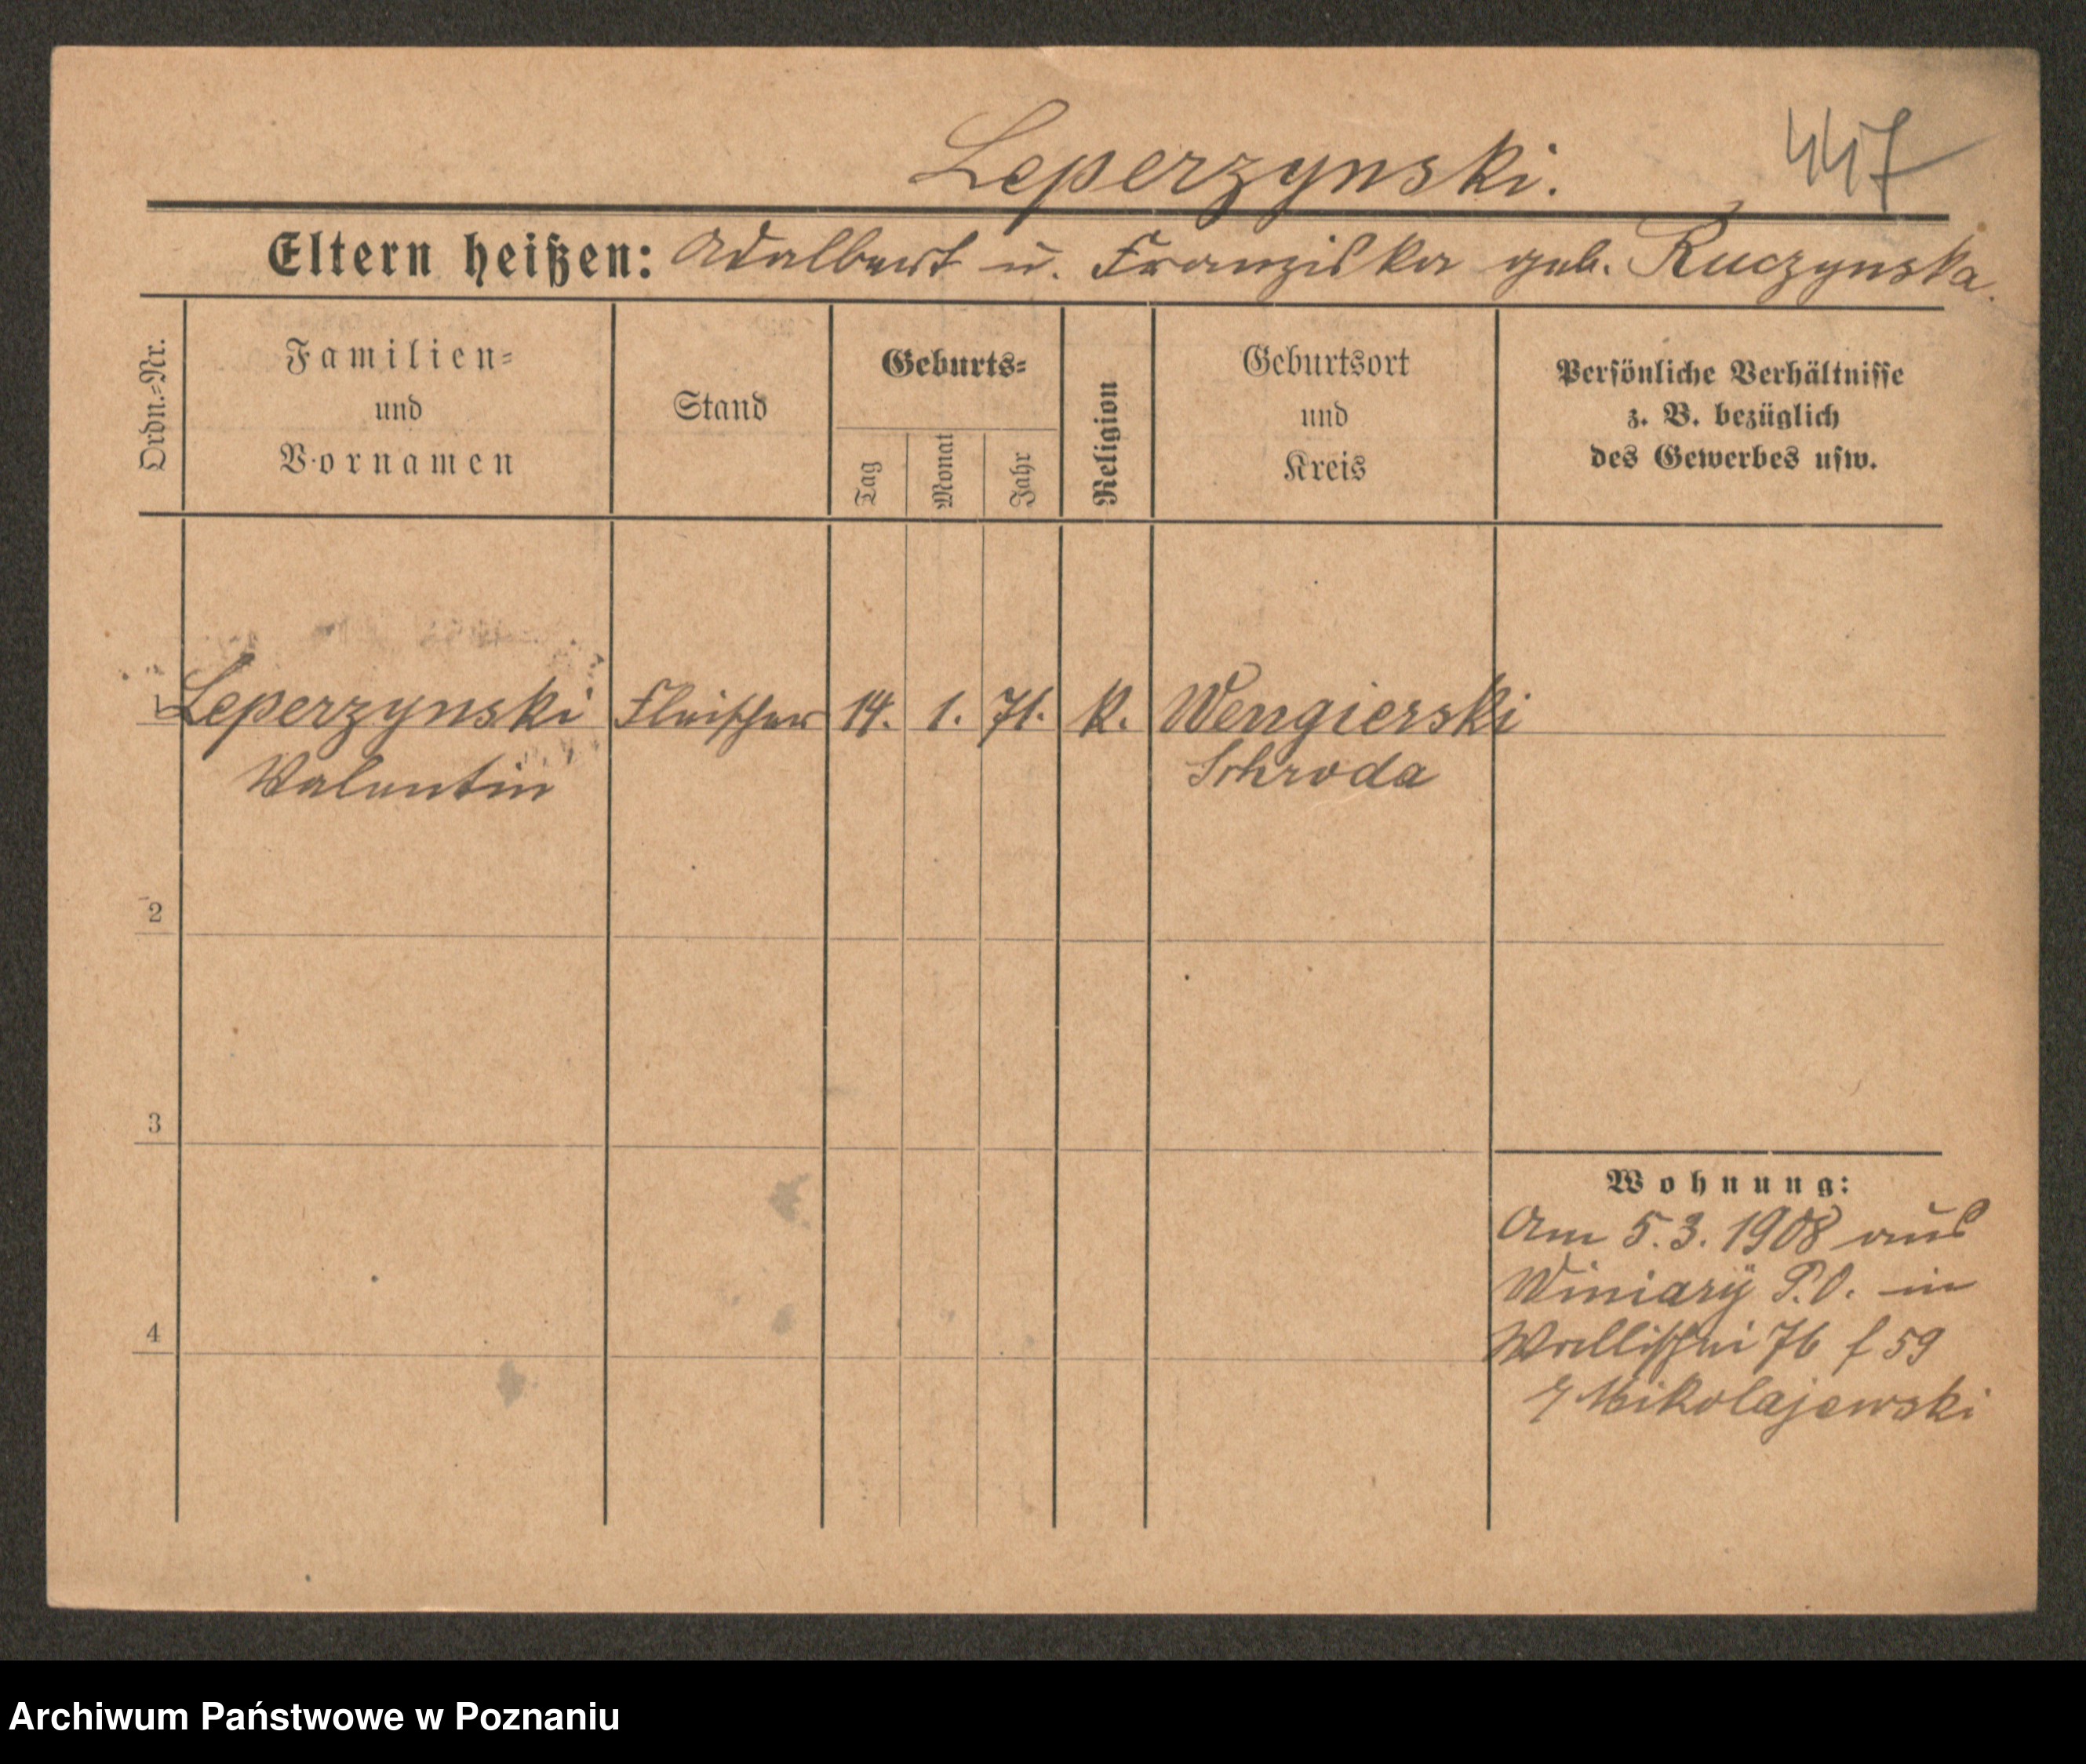 Leperzynski. 447
Eltern heißen: Adalbert u. Franziska geb. Ruczynska.
Ordn.-Nr.
Familien-
und
Vornamen
Stand
Geburts-
Tag
Monat
Jahr
Religion
Geburtsort
und
Kreis
Persönliche Verhältnisse
z. B. bezüglich
des Gewerbes usw.
1 Leperzynski Fleischer 14. 1. 71. K. Wengierski
Valentin Schroda
2
3
4
Wohnung:
Am 5.3.1908 aus
Winiary P.O. in
Wallischei 76 f 59
Mikolajewski
Archiwum Państwowe w Poznaniu